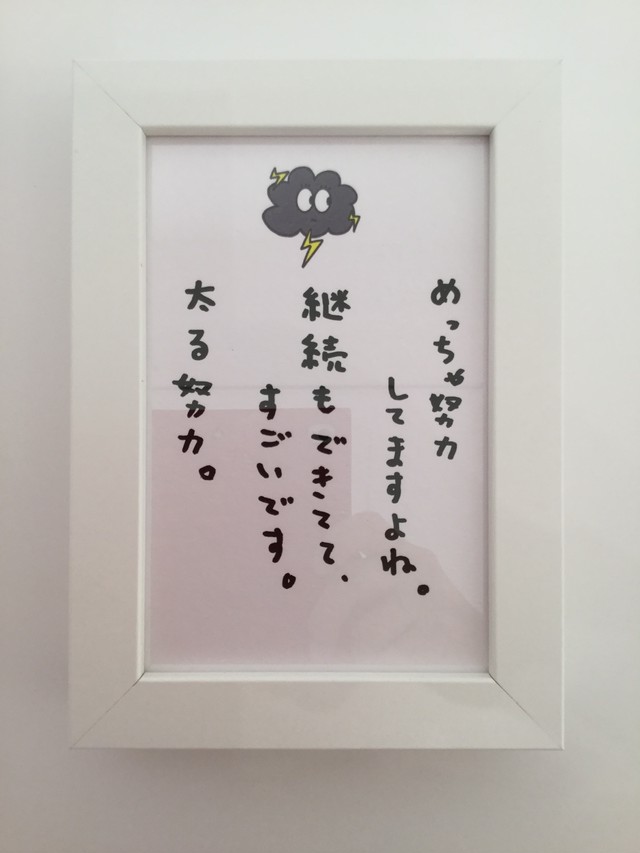 めっちゃ努力
してますよね。
継続もできてて、
すごいです。
太る努力。